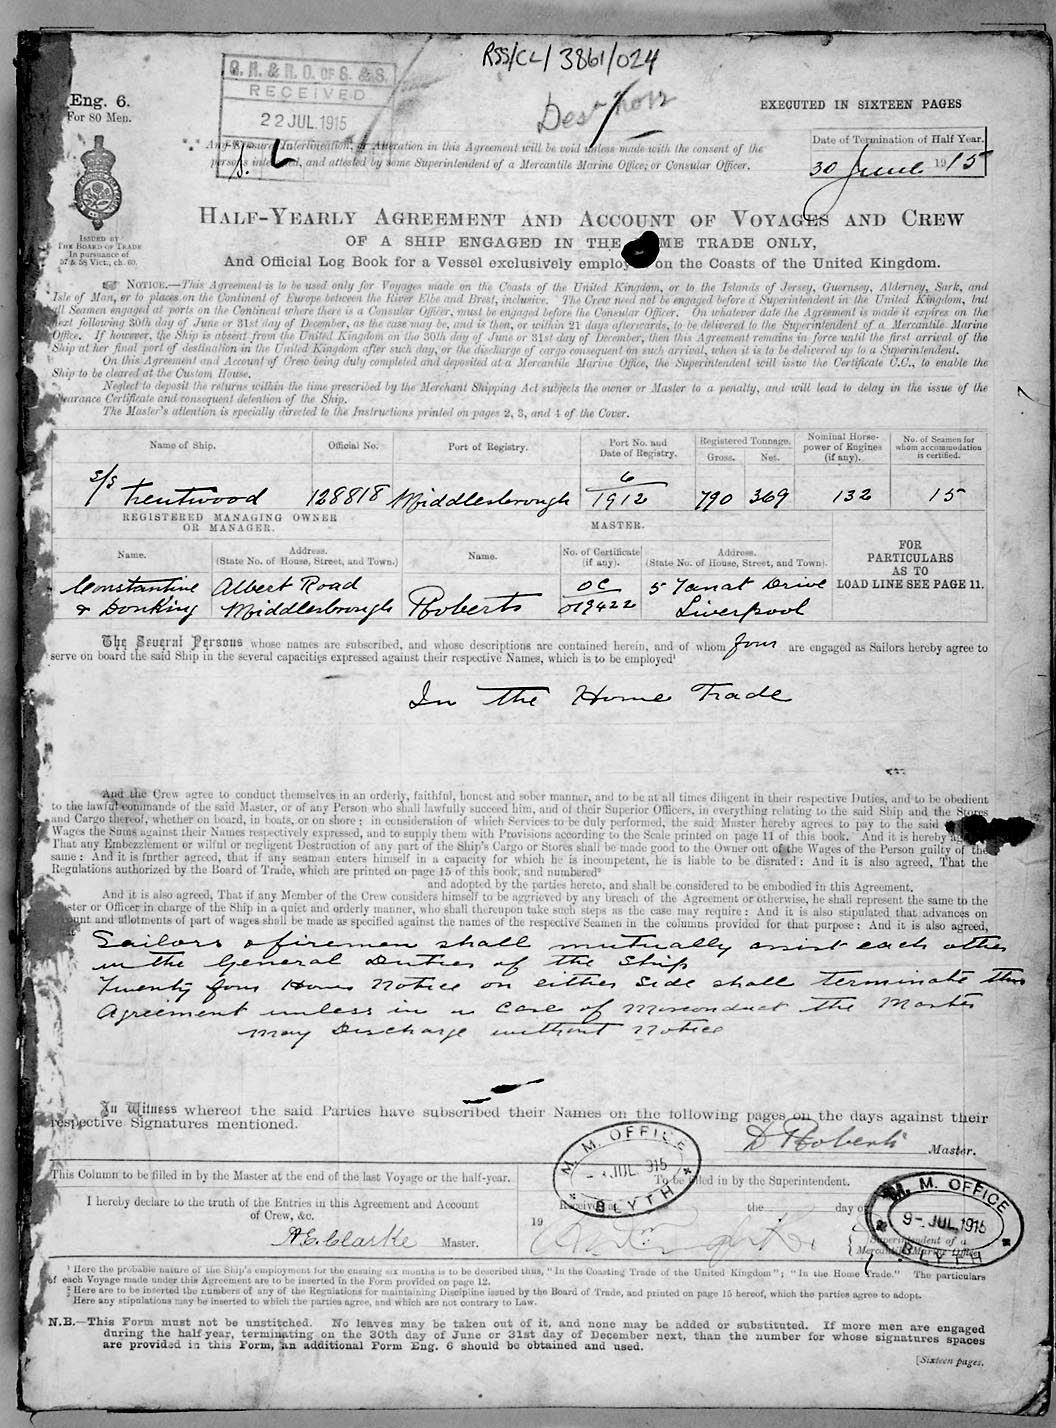 RSS/CL/3861/024
G. R. & R. O. OF S. & S.
RECEIVED
22 JUL. 1915
Eng. 6.
For 80 Men.
EXECUTED IN SIXTEEN PAGES
Any Erasure, Interlineation, or Alteration in this Agreement will be void unless made with the consent of the
persons interested, and attested by some Superintendent of a Mercantile Marine Office, or Consular Officer.
Date of Termination of Half Year.
30 June 1915
ISSUED BY
THE BOARD OF TRADE
In pursuance of
57 & 58 Vict., ch. 60.
HALF-YEARLY AGREEMENT AND ACCOUNT OF VOYAGES AND CREW
OF A SHIP ENGAGED IN THE ME TRADE ONLY,
And Official Log Book for a Vessel exclusively employ on the Coasts of the United Kingdom.
NOTICE.—This Agreement is to be used only for Voyages made on the Coasts of the United Kingdom, or to the Islands of Jersey, Guernsey, Alderney, Sark, and
Isle of Man, or to places on the Continent of Europe between the River Elbe and Brest, inclusive. The Crew need not be engaged before a Superintendent in the United Kingdom, but
all Seamen engaged at ports on the Continent where there is a Consular Officer, must be engaged before the Consular Officer. On whatever date the Agreement is made it expires on the
next following 30th day of June or 31st day of December, as the case may be, and is then, or within 21 days afterwards, to be delivered to the Superintendent of a Mercantile Marine
Office. If however, the Ship is absent from the United Kingdom on the 30th day of June or 31st day of December, then this Agreement remains in force until the first arrival of the
Ship at her final port of destination in the United Kingdom after such day, or the discharge of cargo consequent on such arrival, when it is to be delivered up to a Superintendent.
On this Agreement and Account of Crew being duly completed and deposited at a Mercantile Marine Office, the Superintendent will issue the Certificate C.C., to enable the
Ship to be cleared at the Custom House.
Neglect to deposit the returns within the time prescribed by the Merchant Shipping Act subjects the owner or Master to a penalty, and will lead to delay in the issue of the
Clearance Certificate and consequent detention of the Ship.
The Master's attention is specially directed to the Instructions printed on pages 2, 3, and 4 of the Cover.
Name of Ship. Official No. Port of Registry. Port No. and Date of Registry. Registered Tonnage. Gross. Net. Nominal Horse-power of Engines (if any). No. of Seamen for whom accommodation is certified.
s/s Trentwood 128818 Middlesbrough 6/1912 790 369 132 15
REGISTERED MANAGING OWNER OR MANAGER. MASTER.
Name. Address. (State No. of House, Street, and Town.) Name. No. of Certificate (if any). Address. (State No. of House, Street, and Town.)
FOR PARTICULARS AS TO LOAD LINE SEE PAGE 11.
Constantine Albert Road OC 5 Tanat Drive
& Donking Middlesbrough Roberts 019422 Liverpool
The Several Persons whose names are subscribed, and whose descriptions are contained herein, and of whom four are engaged as Sailors hereby agree to
serve on board the said Ship in the several capacities expressed against their respective Names, which is to be employed¹
In the Home Trade
And the Crew agree to conduct themselves in an orderly, faithful, honest and sober manner, and to be at all times diligent in their respective Duties, and to be obedient
to the lawful commands of the said Master, or of any Person who shall lawfully succeed him, and of their Superior Officers, in everything relating to the said Ship and the Stores
and Cargo thereof, whether on board, in boats, or on shore; in consideration of which Services to be duly performed, the said Master hereby agrees to pay to the said
Wages the Sums against their Names respectively expressed, and to supply them with Provisions according to the Scale printed on page 11 of this book. And it is hereby
That any Embezzlement or wilful or negligent Destruction of any part of the Ship's Cargo or Stores shall be made good to the Owner out of the Wages of the Person guilty of the
same: And it is further agreed, that if any seaman enters himself in a capacity for which he is incompetent, he is liable to be disrated: And it is also agreed, That the
Regulations authorized by the Board of Trade, which are printed on page 15 of this book, and numbered²
and adopted by the parties hereto, and shall be considered to be embodied in this Agreement.
And it is also agreed, That if any Member of the Crew considers himself to be aggrieved by any breach of the Agreement or otherwise, he shall represent the same to the
Master or Officer in charge of the Ship in a quiet and orderly manner, who shall thereupon take such steps as the case may require: And it is also stipulated that advances on
account and allotments of part of wages shall be made as specified against the names of the respective Seamen in the columns provided for that purpose: And it is also agreed,
Sailors & firemen shall mutually assist each other
in the General Duties of the Ship
Twenty four Hours Notice on either Side shall terminate this
Agreement unless in a Case of Misconduct the Master
may Discharge without Notice
In Witness whereof the said Parties have subscribed their Names on the following pages on the days against their
respective Signatures mentioned.
D Roberts Master.
M. M. OFFICE
JUL. 1915
BLYTH
This Column to be filled in by the Master at the end of the last Voyage or the half-year.
To be filled in by the Superintendent.
I hereby declare to the truth of the Entries in this Agreement and Account
of Crew, &c.
A.E. Clarke Master.
Received at the day of
19
Superintendent of a
Mercantile Marine Office
M. M. OFFICE
9 - JUL. 1915
BLYTH
¹ Here the probable nature of the Ship's employment for the ensuing six months is to be described thus, "In the Coasting Trade of the United Kingdom"; "In the Home Trade." The particulars
of each Voyage made under this Agreement are to be inserted in the Form provided on page 12.
² Here are to be inserted the numbers of any of the Regulations for maintaining Discipline issued by the Board of Trade, and printed on page 15 hereof, which the parties agree to adopt.
Here any stipulations may be inserted to which the parties agree, and which are not contrary to Law.
N.B.—This Form must not be unstitched. No leaves may be taken out of it, and none may be added or substituted. If more men are engaged
during the half year, terminating on the 30th day of June or 31st day of December next, than the number for whose signatures spaces
are provided in this Form, an additional Form Eng. 6 should be obtained and used.
[Sixteen pages.